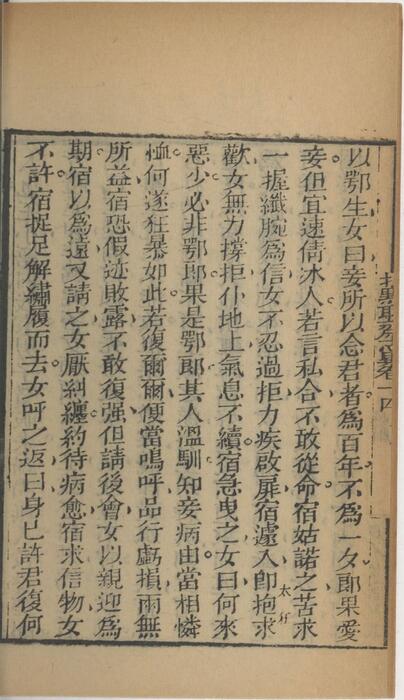 以鄂生女曰妾所以念君者爲百年不爲一夕郎果愛
妾但宜速倩冰人若言私合不敢從命宿姑諾之苦求
一握纖腕爲信女不忍過拒力疾啟扉宿遽入卽抱求
歡女無力撐拒仆地上氣息不續宿急曳之女曰何來
惡少必非鄂郎果是鄂郎其人溫馴知妾病由當相憐
恤何遂狂暴如此若復爾爾便當鳴呼品行虧損兩無
所益宿恐假迹敗露不敢復强但請後會女以親迎爲
期宿以爲遠又請之女厭糾纏約待病愈宿求信物女
不許宿捉足解繡履而去女呼之返曰身已許君復何